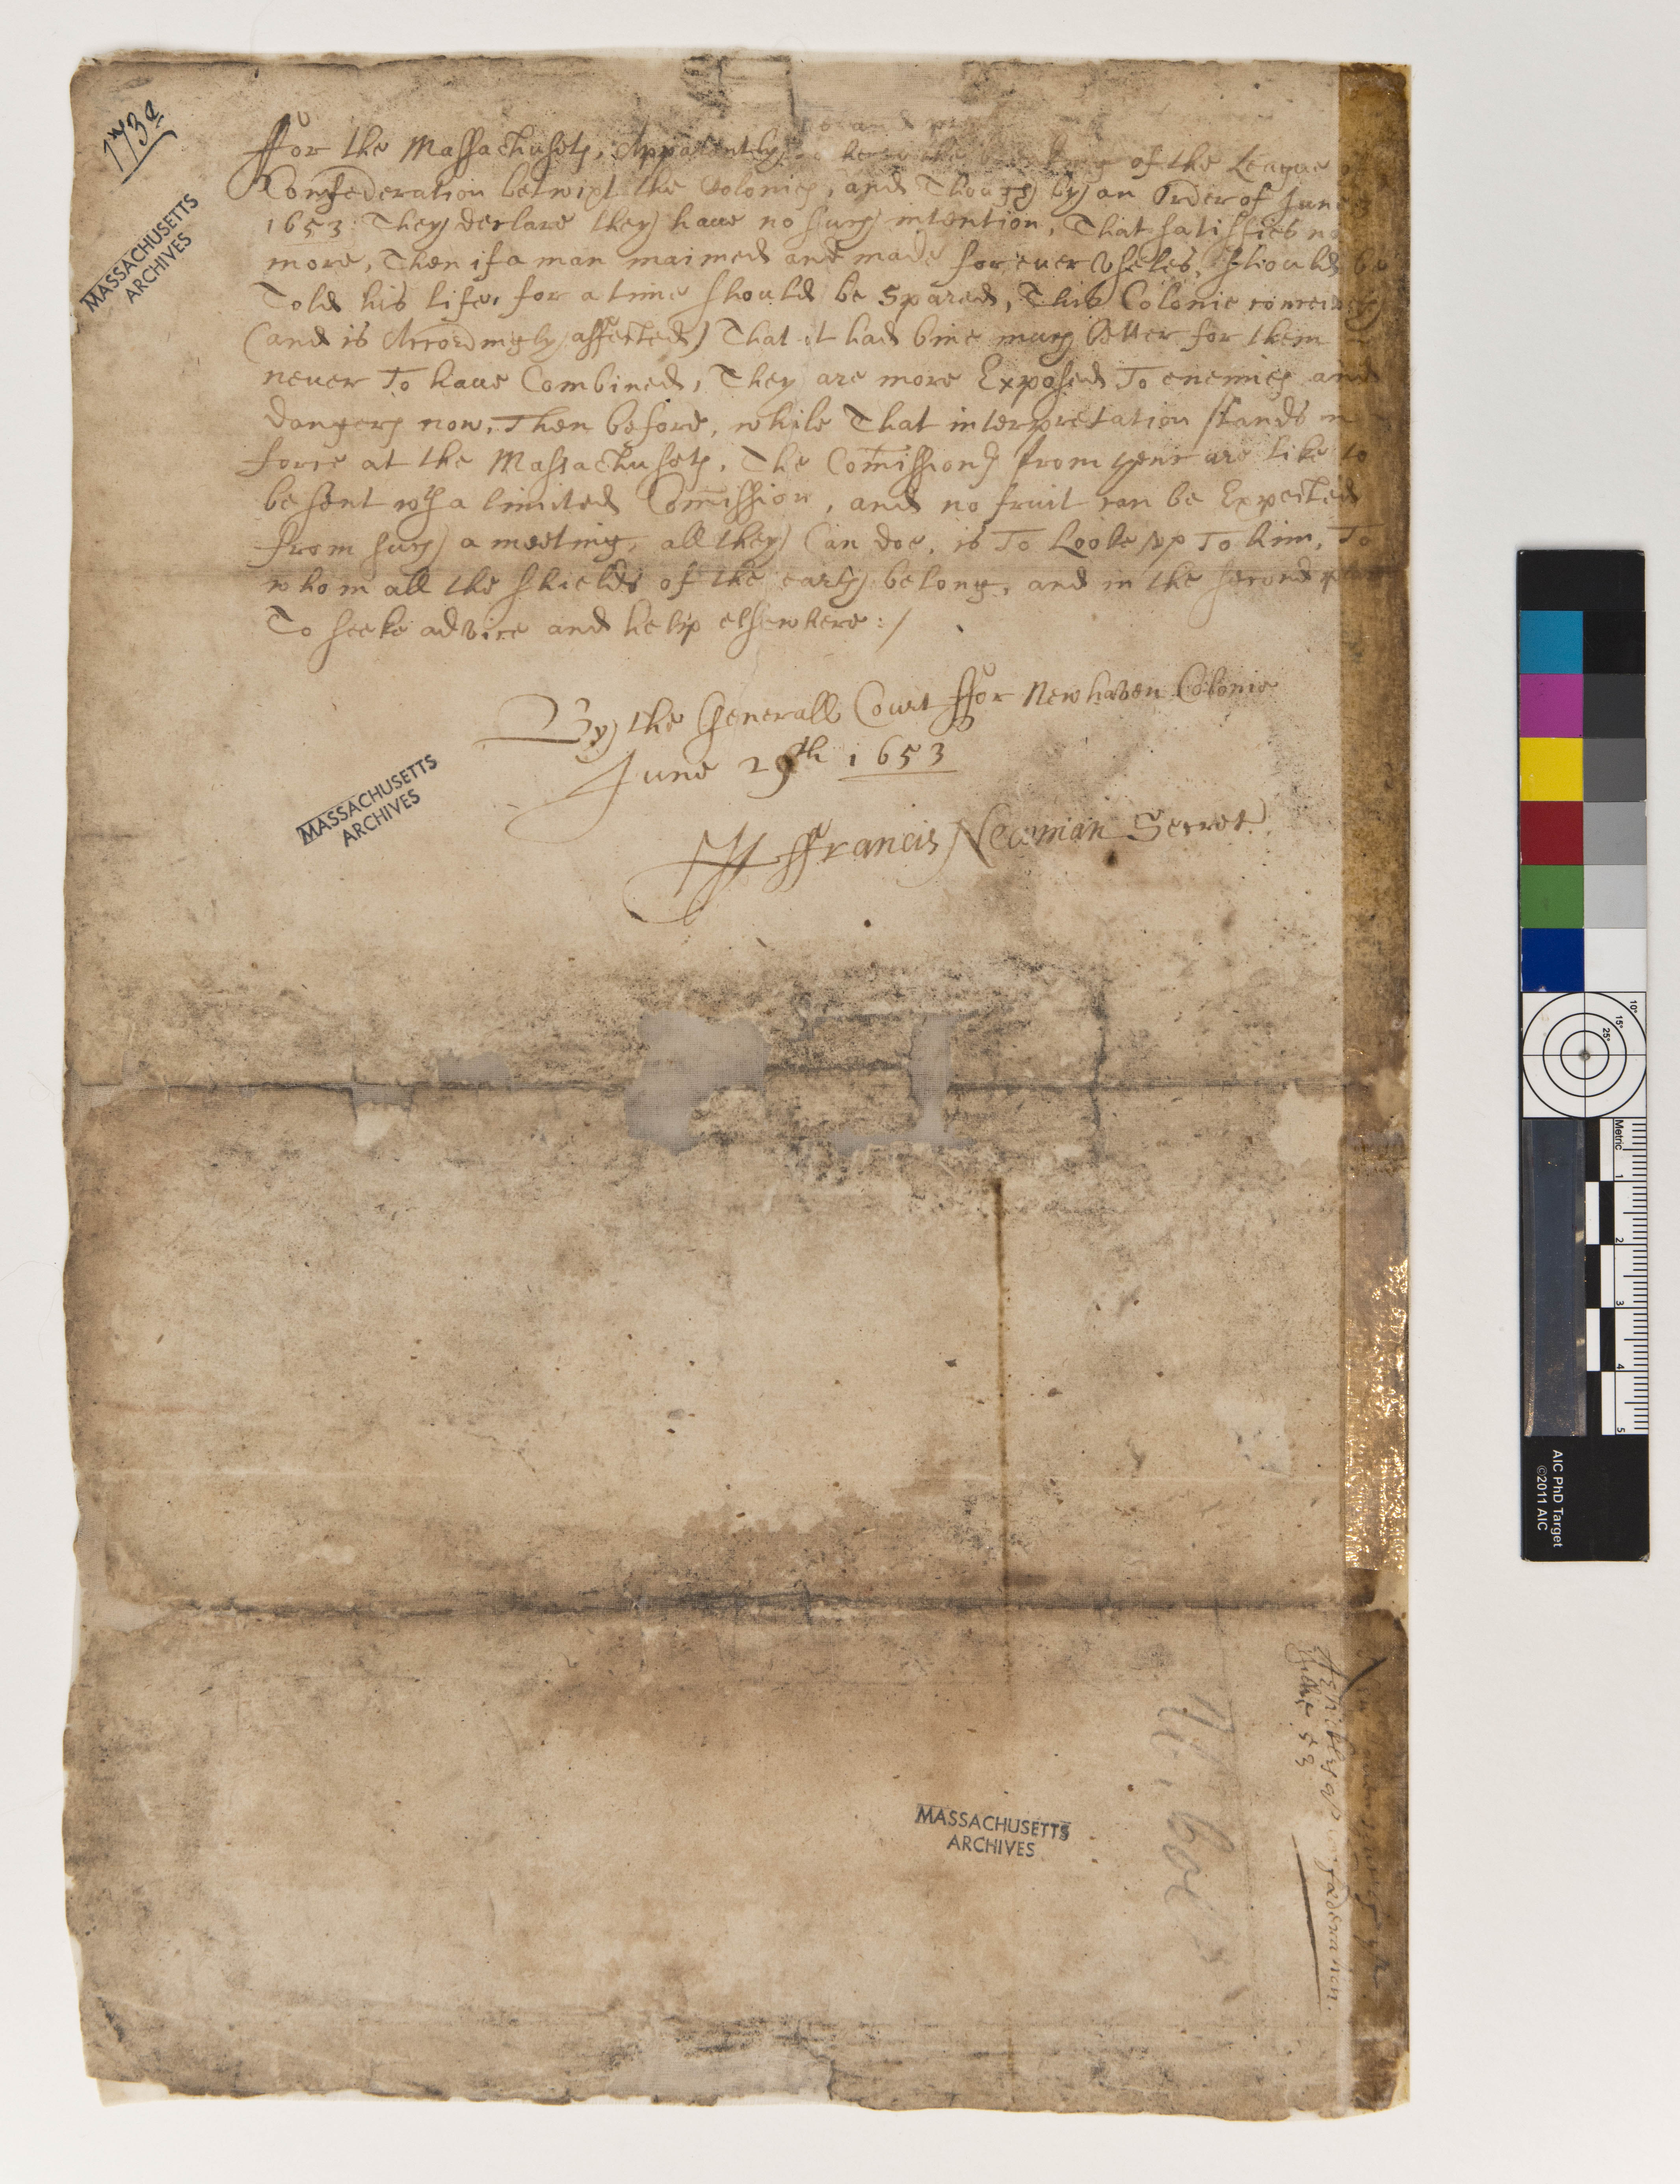 173a
MASSACHUSETTS
ARCHIVES
ffor the Massachusets, Apparently of the League
Confederation betwixt the Colonies, and Though by an Order of June
1653 They declare they haue no such intention, That satisfies no
more, Then if a man maimed and made for euer vseles, should be
Told his life, for a time should be Spared, This Colonie conceives
(and is Accordingly affected) That it had bine much better for them
neuer To haue Combined, They are more Exposed To enemies and
dangers now, Then before, while That interpretation stands in
force at the Massachusets, The Comission's from hence are like to
be sent wth a limited Comission, and no fruit can be Expected
from such a meeting, all they Can doe, is To Looke vp To him, To
whom all the shields of the earth belong, and in the second place
To seeke advice and help elsewhere :/
By the Generall Court ffor Newhaven Colonie
June 29th 1653
MASSACHUSETTS
ARCHIVES
ffrancis Newman Secret.
June 53
MASSACHUSETTS
ARCHIVES
10°
15°
25°
Metric
1
2
3
4
5
AIC PhD Target
©2011 AIC